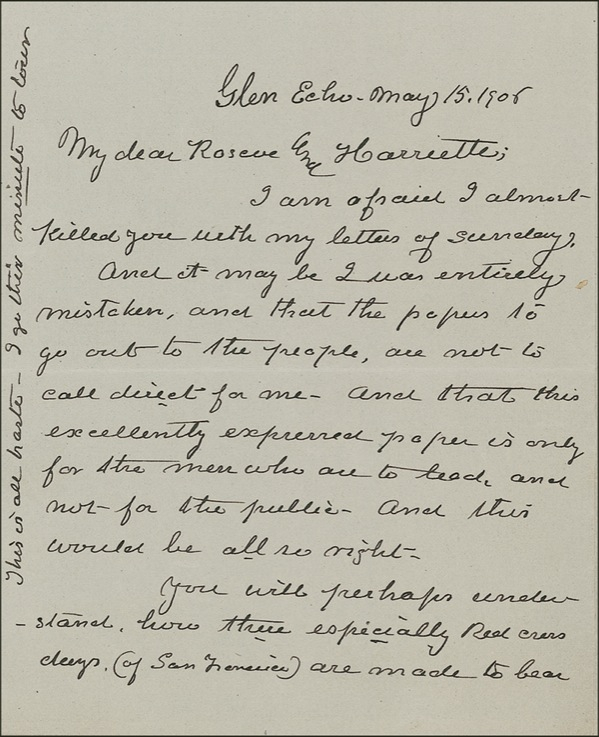 Glen Echo - May 15. 1906
My dear Roscoe and Harriette;
I am afraid I almost
killed you with my letter of Sunday,
And it may be I was entirely
mistaken, and that the papers to
go out to the people, are not to
call direct for me - And that this
excellently expressed paper is only
for the men who are to lead, and
not for the public - And this
would be all so right -
You will perhaps under
- stand, how these especially Red cross
days, (of San Francisco) are made to bear
This is all haste - I go this minute to town